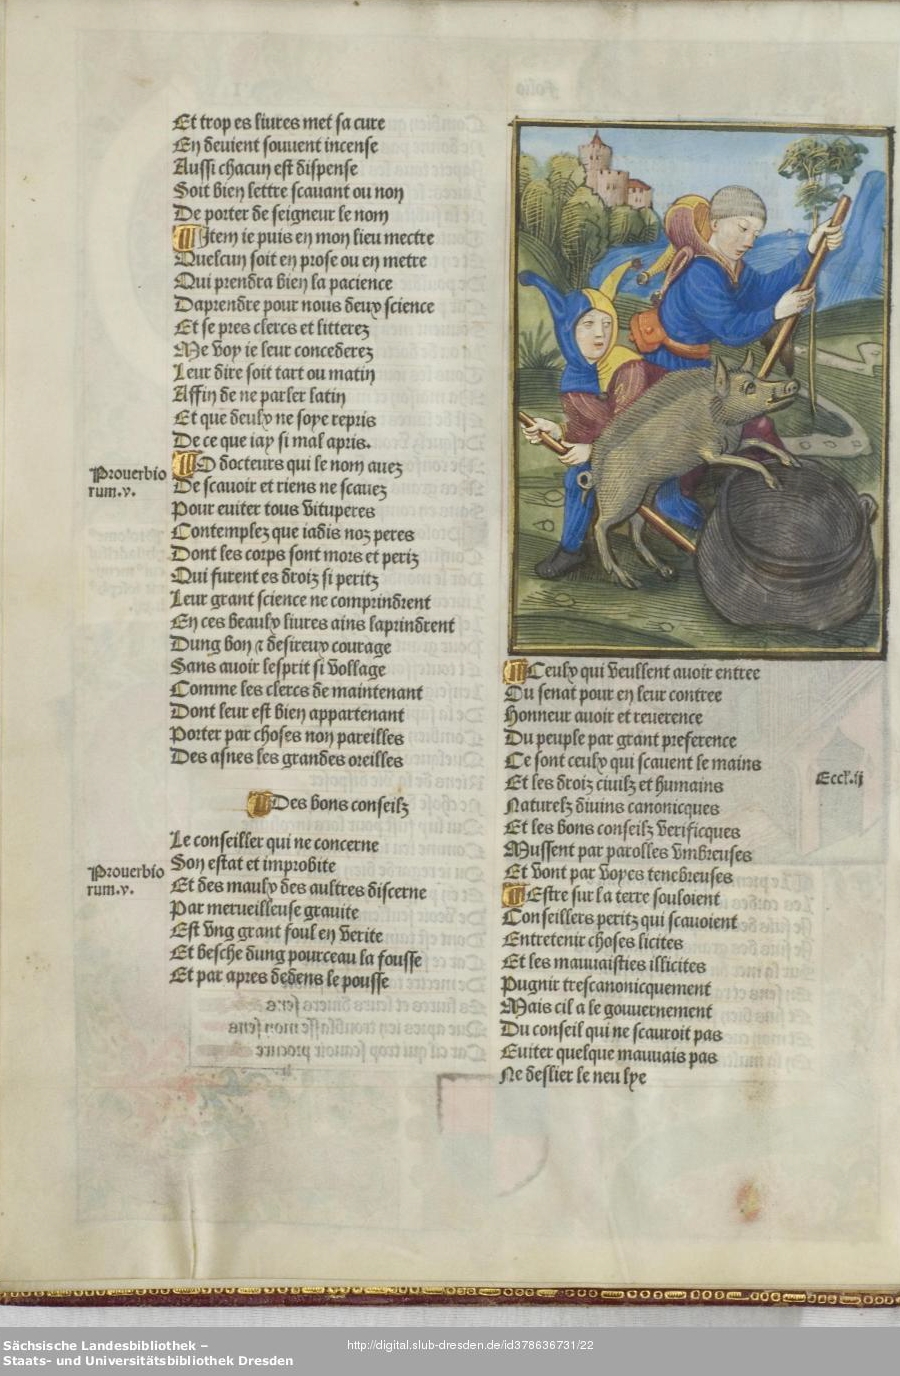 Et trop es liures met sa cure
En deuient souuent incense
Aussi chacun est dispense
Soit bien lettre scauant ou non
De porter de seigneur le nom
Item ie puis en mon lieu mectre
Quelcun soit en prose ou en metre
Qui prendra bien la pacience
Daprendre pour nous deux science
Et se pres clercs et litterez
Me voy ie leur concederez
Leur dire soit tart ou matin
Affin de ne parler latin
Et que deulx ne soye repris
De ce que iay si mal apris.
O docteurs qui le nom auez
De scauoir et riens ne scauez
Pour euiter tous vituperes
Contemplez que iadis noz peres
Dont les corps sont mors et periz
Qui furent es droiz si peritz
Leur grant science ne comprindrent
En ces beaulx liures ains laprindrent
Dung bon ⁊ desireux courage
Sans auoir lesprit si vollage
Comme les clercs de maintenant
Dont leur est bien appartenant
Porter par choses non pareilles
Des asnes les grandes oreilles
Prouerbio
rum.v.
Des bons conseilz
Le conseiller qui ne concerne
Son estat et improbite
Et des maulx des aultres discerne
Par merueilleuse grauite
Est vng grant foul en verite
Et besche dung pourceau la fousse
Et par apres dedens le pousse
Prouerbio
rum.v.
Ceulx qui veullent auoir entree
Du senat pour en leur contree
Honneur auoir et reuerence
Du peuple par grant preference
Ce sont ceulx qui scauent le mains
Et les droiz ciuilz et humains
Naturelz diuins canonicques
Et les bons conseilz verificques
Mussent par parolles vmbreuses
Et vont par voyes tenebreuses
Estre sur la terre souloient
Conseillers peritz qui scauoient
Entretenir choses licites
Et les mauuaisties illicites
Pugnir trescanonicquement
Mais cil a le gouuernement
Du conseil qui ne scauroit pas
Euiter quelque mauuais pas
Ne deslier le neu lye
Eccl.ij
Sächsische Landesbibliothek –
Staats- und Universitätsbibliothek Dresden
http://digital.slub-dresden.de/id378636731/22